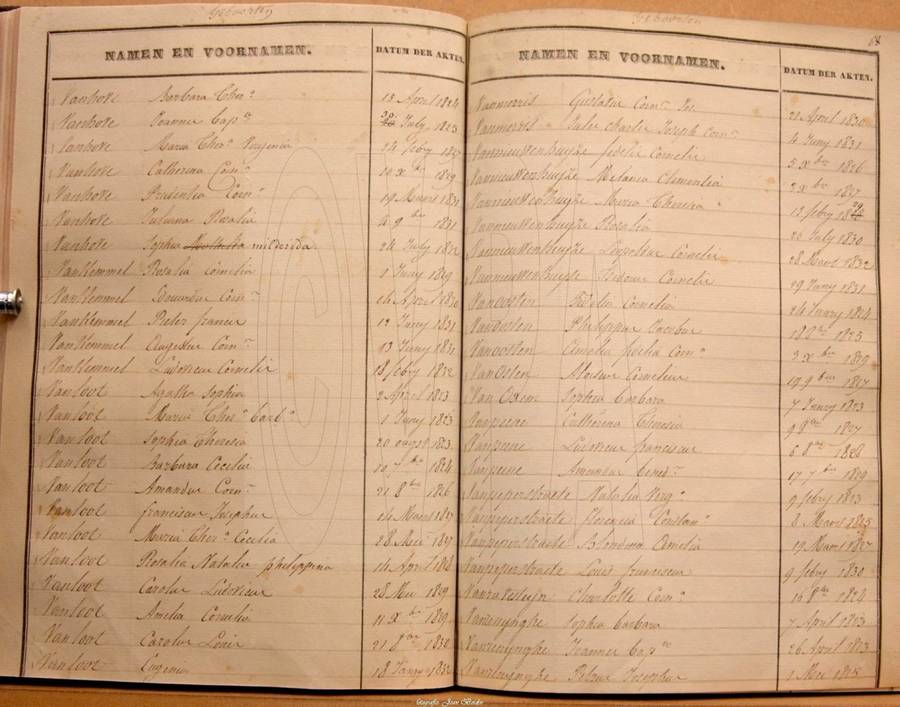 Geboorten
NAMEN EN VOORNAMEN. DATUM DER AKTEN.
Vanhove Barbara Ther.ª 13 April 1824
Vanhove Joannes Bap.te July 1823
Vanhove Maria Ther.ª Eugenia 24 feby 1827
Vanhove Catherina Corn.ª 10 Xbre 1829
Vanhove Prudentia Corn.ª 19 Maart 1832
Vanhove Juliana Rosalia 4 9bre 1831
Vanhove Sophia milderida 24 July 1832
Vanhemmel Rosalia Cornelia 1 Juny 1829
Vanhemmel Eduardus Corn.s 16 April 1830
Vanhemmel Pieter francis 12 Juny 1831
Vanhemmel Augustus Corn.s 13 Juny 1831
Vanhemmel Ludovicus Cornelis 18 feby 1832
Vanloot Agatha Sophia 2 April 1823
Vanloot Maria Ther.ª Barb.ª 1 Juny 1823
Vanloot Sophia Theresia 20 august 1823
Vanloot Barbara Cecilia 10 7bre 1824
Vanloot Amandus Corn.s 21 8bre 1826
Vanloot franciscus Josephus 14 Maart 1827
Vanloot Maria Ther.ª Cecilia 28 Mei 1827
Vanloot Rosalia Natalia philippina 14 April 1828
Vanloot Carolus Ludovicus 28 Mei 1829
Vanloot Amelia Cornelia 11 Xbre 1829
Vanloot Carolus Louis 21 8bre 1830
Vanloot Eugenius 18 Janry 1832
Geboorten
68
NAMEN EN VOORNAMEN. DATUM DER AKTEN.
Vanmerris Gustavus Corn.s Jos. 21 April 1830
Vanmerris Jules charles Joseph Corn.s 4 Juny 1831
Vannieuwenhuyse fidelis Cornelis 5 Xbre 1826
Vannieuwenhuyse Melania Clementia 2 Xbre 1827
Vannieuwenhuyse Maria Theresia 13 feby 1829
Vannieuwenhuyse Rosalia 26 July 1830
Vannieuwenhuyse Leopoldus Cornelis 28 Maart 1832
Vannieuwenhuyse Isidorus Cornelis 19 Juny 1831
Vanoosten Fidelis Cornelis 24 Juny 1824
Vanoosten Philippus Jacobus 18 1825
Vanoosten Amelia Julia Corn.ª 2 Xbre 1829
Van Osten Aloisius Cornelius 19 9bre 1827
Van Sophia Barbara 7 Janry 1823
Vanpeene Catherina Theresia 9 9bre 1827
Vanpeene Ludovicus franciscus 5 8bre 1828
Vanpeene Amandus Bened.s 17 7bre 1829
Vanpeperstraete Natalia Virg.ª 9 feby 1823
Vanpeperstraete Florentia Constan.ª 8 Maart 1825
Vanpeperstraete Blondina Amelia 19 Maart 1827
Vanpeperstraete Louis franciscus 9 feby 1830
Charlotte Corn.ª 16 8bre 1824
Vanrenynghe Sophia Barbara 7 April 1823
Vanrenynghe Joannes Bap.te 26 April 1823
Vanrenynghe Petrus Josephus 1 Mei 1825